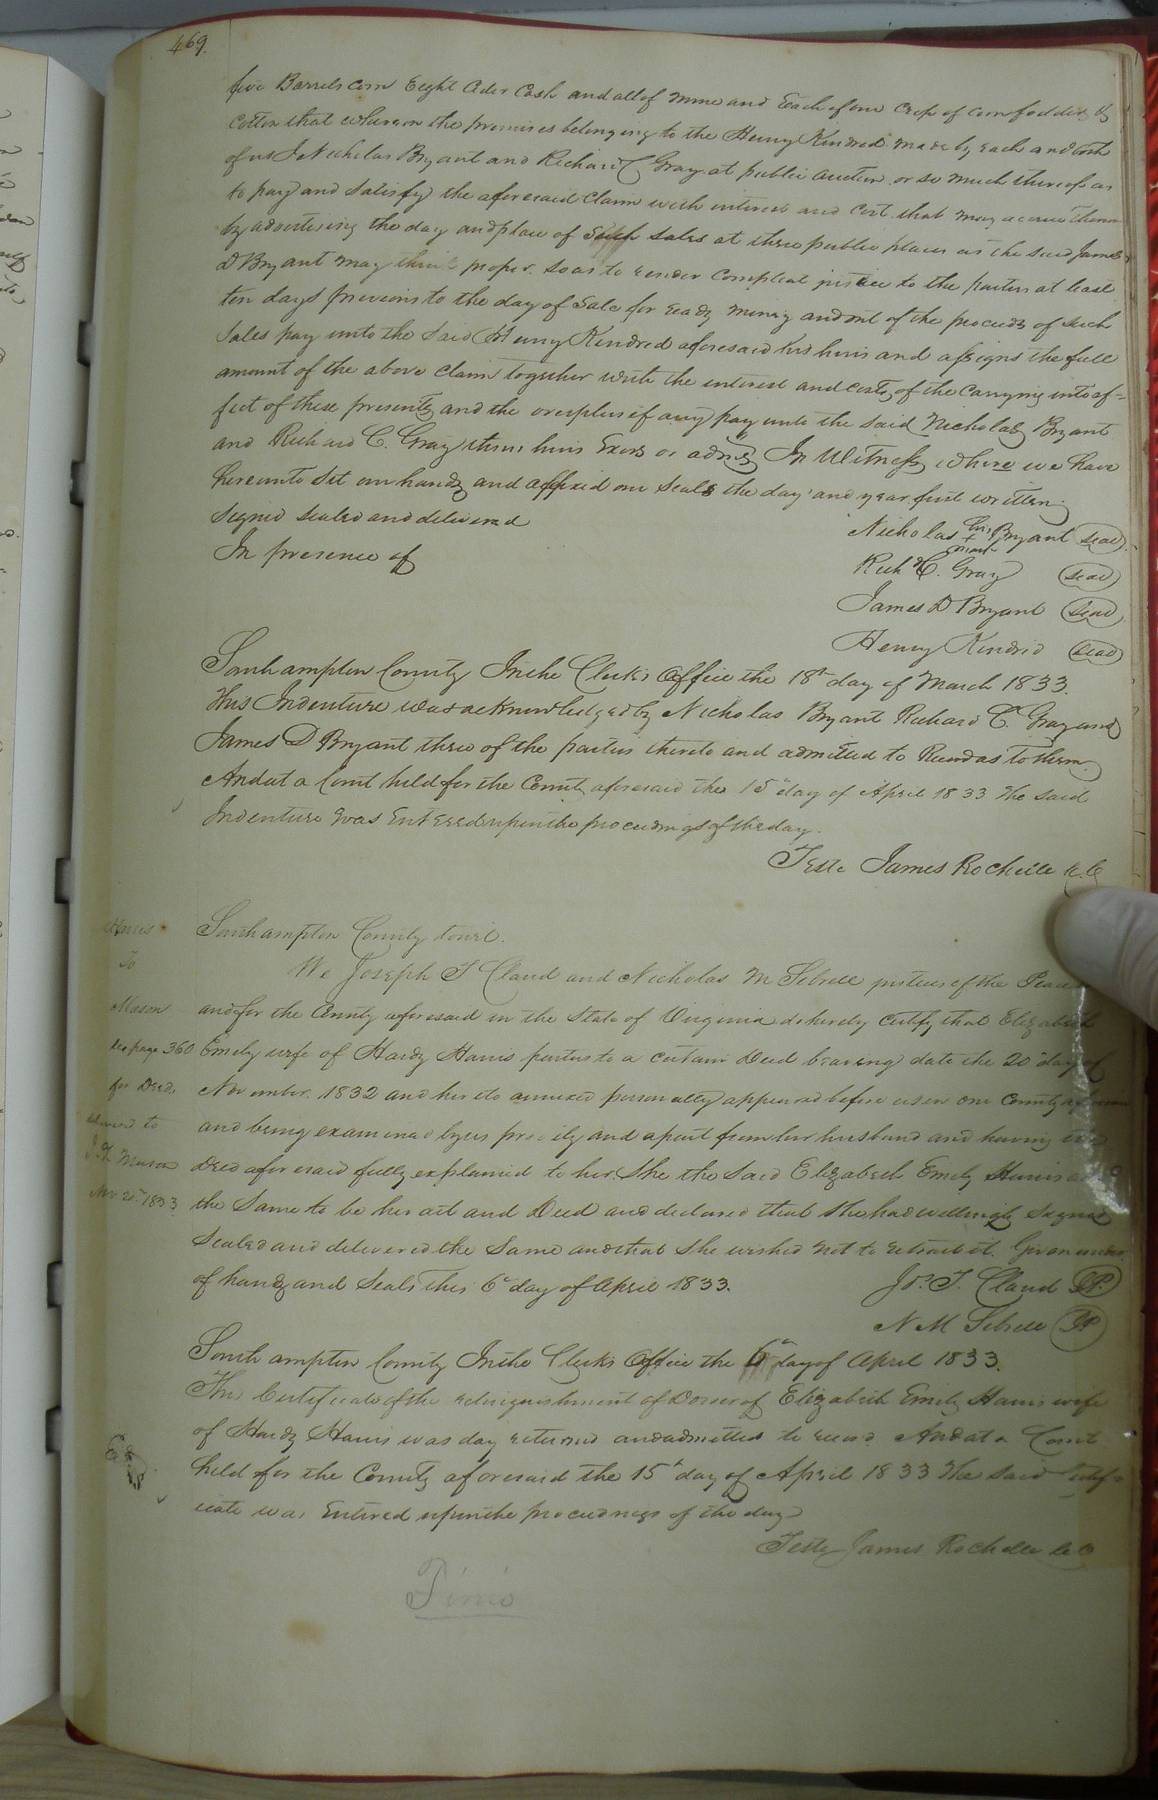 469.
five Barrels corn Eight Cider Cash and all of mine and Each of our Crop of corn fodder &
cotton that when on the premises belonging to the Henry Kindred made by each and both
of us I Nicholas Bryant and Richard C Gray at public auction or so much thereof as
to pay and satisfy the aforesaid Claim with interest and cost that may accrue thereon
by advertising the day and place of Such Sales at three public places as the said James
D Bryant may think proper so as to render Compleat justice to the parties at least
ten days previous to the day of Sale for ready money and out of the proceeds of such
Sales pay unto the said Henry Kindred aforesaid his heirs and assigns the full
amount of the above claim together with the interest and costs of the carrying into af=
fect of these presents and the overplus if any pay unto the said Nicholas Bryant
and Richard C. Gray their heirs Exors or admrs In Witness where we have
hereunto Set our hands and affixed our Seals the day and year first written.
Signed Sealed and delivered
In presence of
Nicholas his + mark Bryant (seal)
Richd C. Gray (seal)
James D Bryant (seal)
Henry Kindrid (seal)
Southampton County In the Clerk's Office the 18th day of March 1833.
This Indenture was acknowledged by Nicholas Bryant Richard C. Gray and
James D Bryant three of the parties thereto and admitted to Record as to them.
And at a Court held for the County aforesaid the 15th day of April 1833 the said
Indenture was Entered upon the proceedings of the day.
Teste James Rochelle C.C.
Harris
To
Mason
see page 360
for Deed.
delivered to
Mason
Nov 20th 1833.
Southampton County towit.
We Joseph T Claud and Nicholas M Sebrell justices of the Peace
and for the County aforesaid in the State of Virginia do hereby Certify that Elizabeth
Emily wife of Hardy Harris parties to a certain Deed bearing date the 20th day of
November 1832 and hereto annexed personally appeared before us in our County aforesaid
and being examined by us privily and apart from her husband and having the
Deed aforesaid fully explained to her She the said Elizabeth Emily Harris
the Same to be her act and Deed and declared that She had willingly Signed
Sealed and delivered the Same and that She wished not to retract it. Given under
of hands and Seals this 6th day of April 1833.
Jos. T. Claud JP.
N M Sebrell JP
Southampton County In the Clerk's Office the 6th day of April 1833.
This Certificate of the relinquishment of Dower of Elizabeth Emily Harris wife
of Hardy Harris was day returned and admitted to record And at a Court
held for the County aforesaid the 15th day of April 1833 the said Certifi=
icate was Entered upon the proceedings of the day
Teste James Rochelle C.C